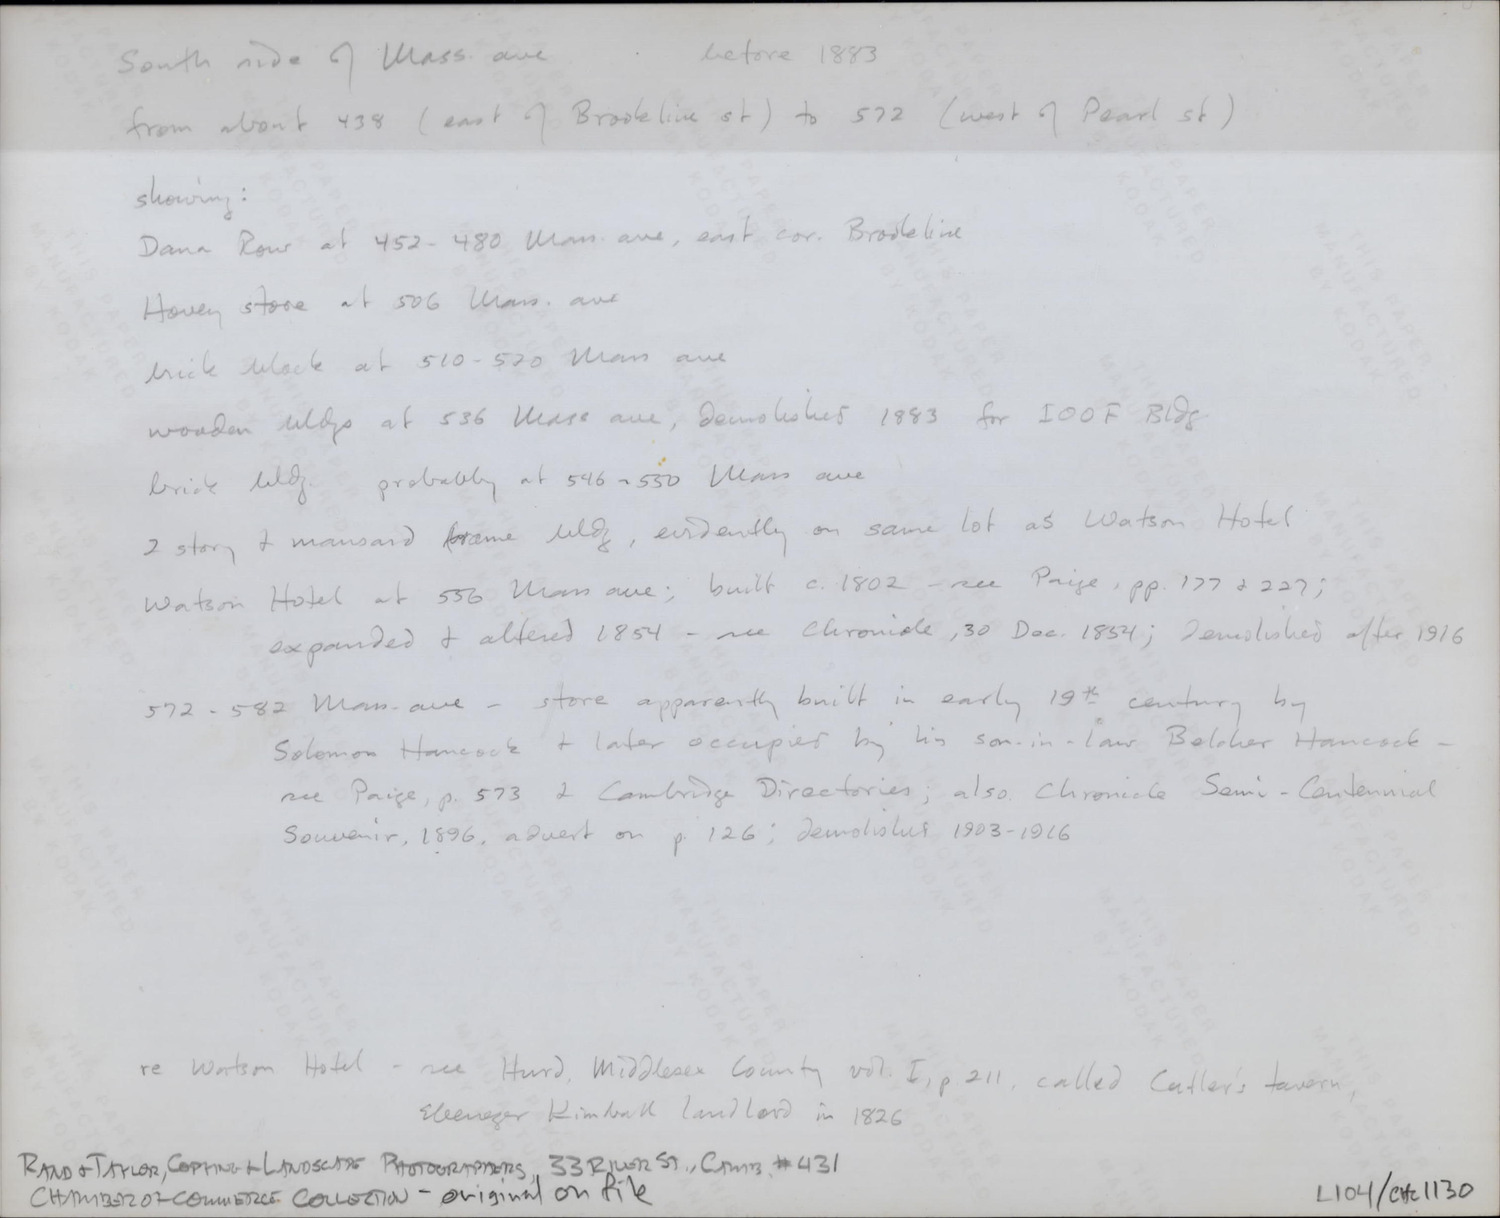 South side of Mass. ave before 1883
from about 438 (east of Brookline st) to 572 (west of Pearl st)
showing:
Dana Row at 452-480 Mass. ave, east cor. Brookline
Hovey store at 506 Mass. ave
brick block at 510-520 Mass ave
wooden bldgs at 536 Mass ave, demolished 1883 for IOOF Bldg
brick bldg. probably at 546-550 Mass ave
2 story & mansard frame bldg, evidently on same lot as Watson Hotel
Watson Hotel at 556 Mass ave; built c. 1802 - see Paige, pp. 177 & 227;
expanded & altered 1854 - see Chronicle, 30 Dec. 1854; demolished after 1916
572-582 Mass. ave - store apparently built in early 19th century by
Solomon Hancock & later occupied by his son-in-law Belcher Hancock -
see Paige, p. 573 & Cambridge Directories; also Chronicle Semi-Centennial
Souvenir, 1896, advert on p. 126; demolished 1903-1916
re Watson Hotel - see Hurd, Middlesex County vol. I, p. 211, called Cutler's tavern,
Ebenezer Kimball landlord in 1826
RAND & TAYLOR, COPYING & LANDSCAPE PHOTOGRAPHERS, 33 RIVER ST., CAMB. #431
CHAMBER OF COMMERCE COLLECTION - original on file
L104/CHC1130
THIS PAPER
MANUFACTURED
BY KODAK